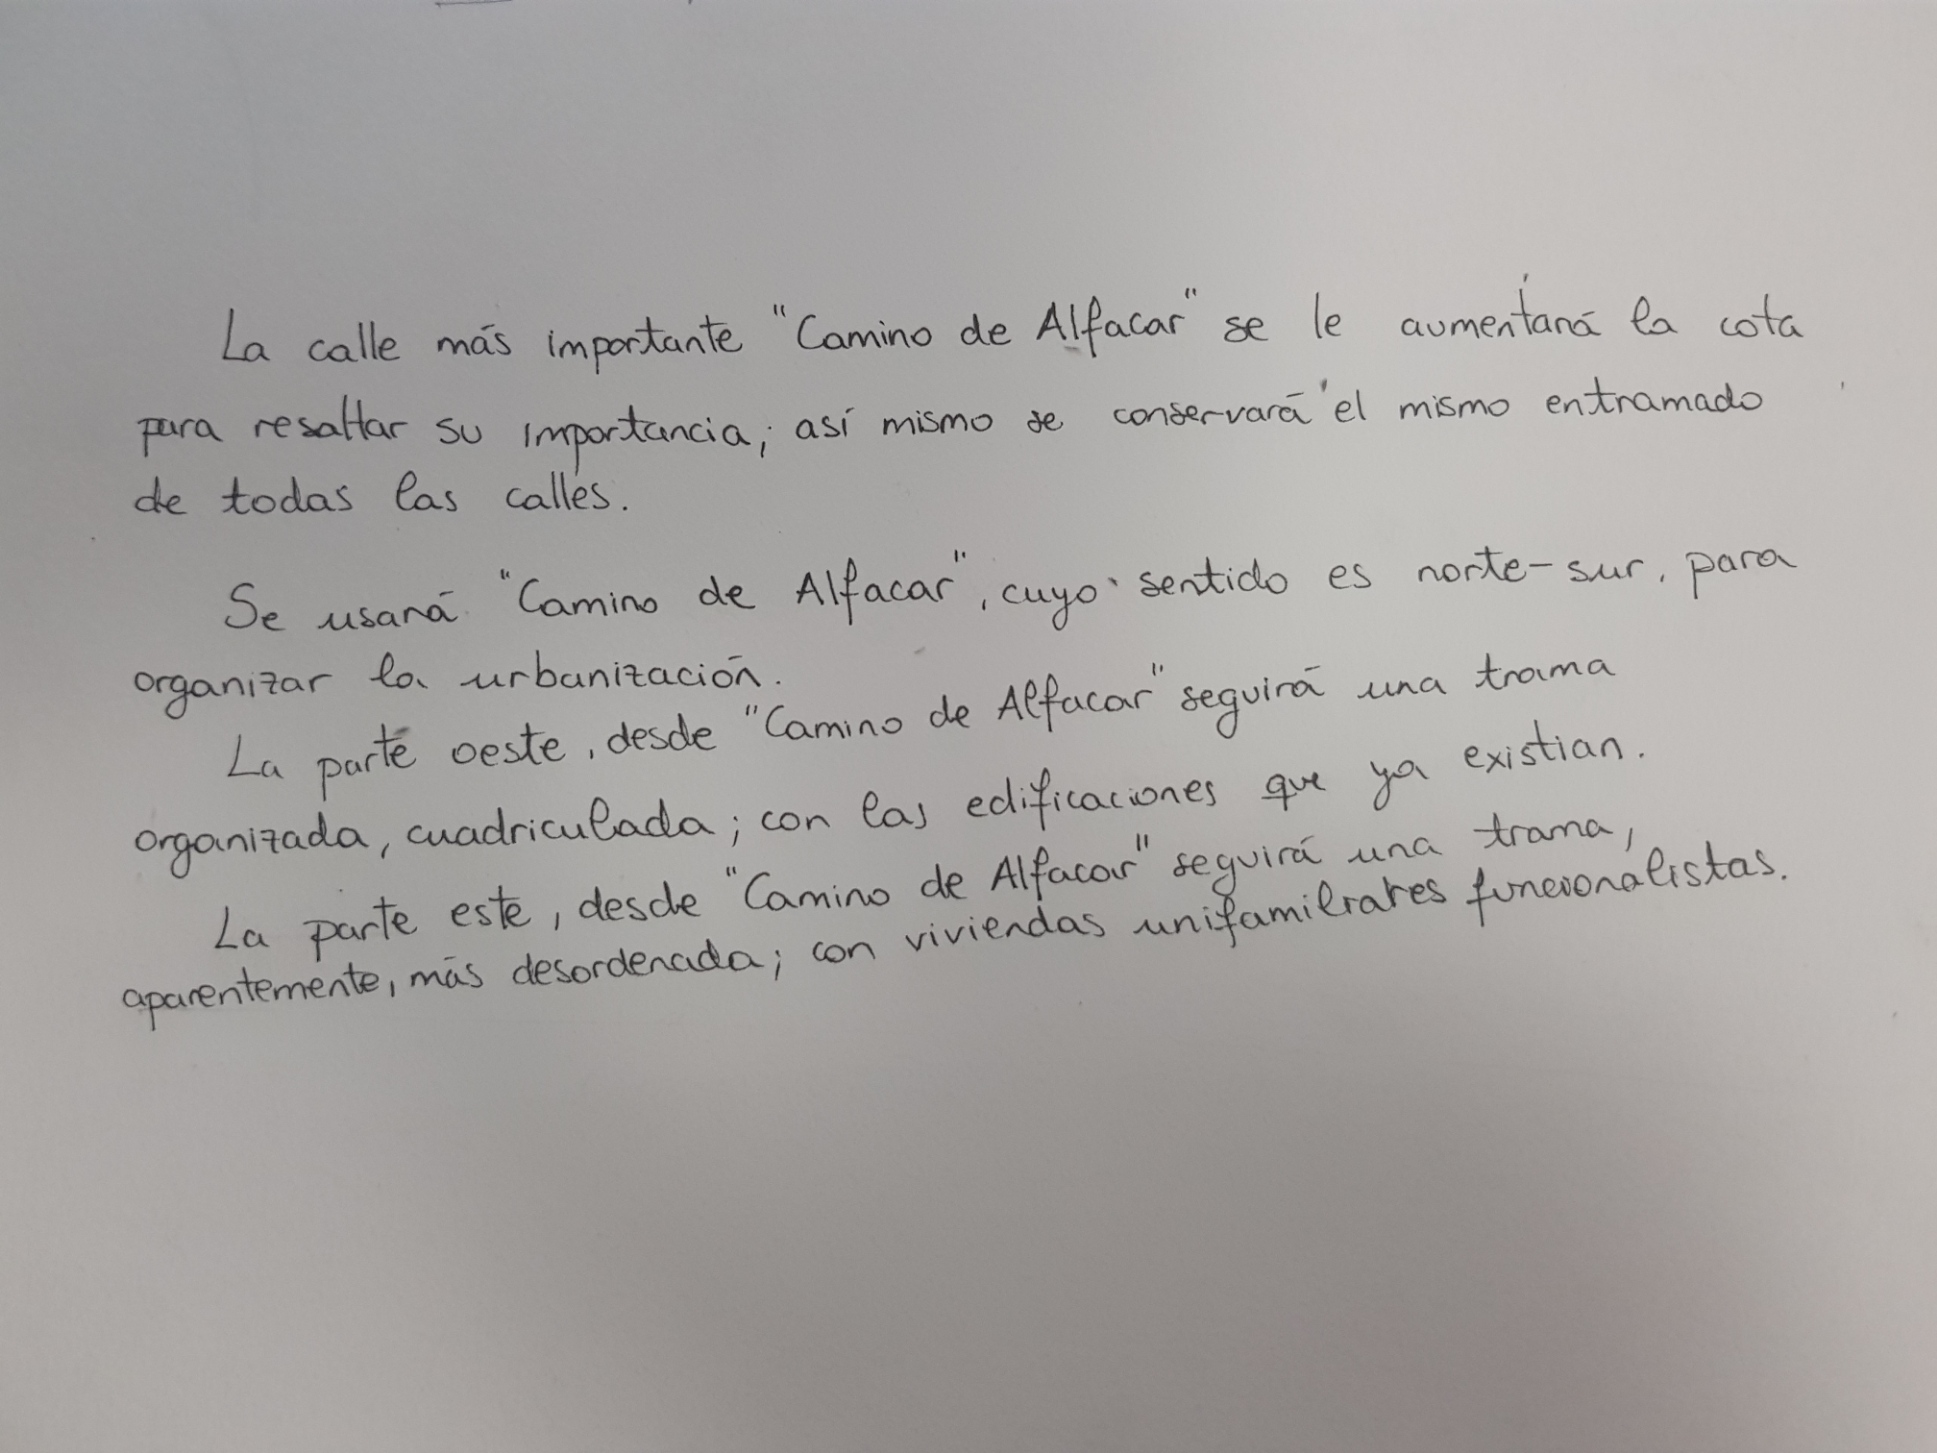 La calle más importante "Camino de Alfacar" se le aumentará la cota
para resaltar su importancia; así mismo se conservará el mismo entramado
de todas las calles.
Se usará "Camino de Alfacar", cuyo sentido es norte-sur, para
organizar la urbanización.
La parte oeste, desde "Camino de Alfacar" seguirá una trama
organizada, cuadriculada; con las edificaciones que ya existian.
La parte este, desde "Camino de Alfacar" seguirá una trama,
aparentemente, más desordenada; con viviendas unifamiliares funcionalistas.